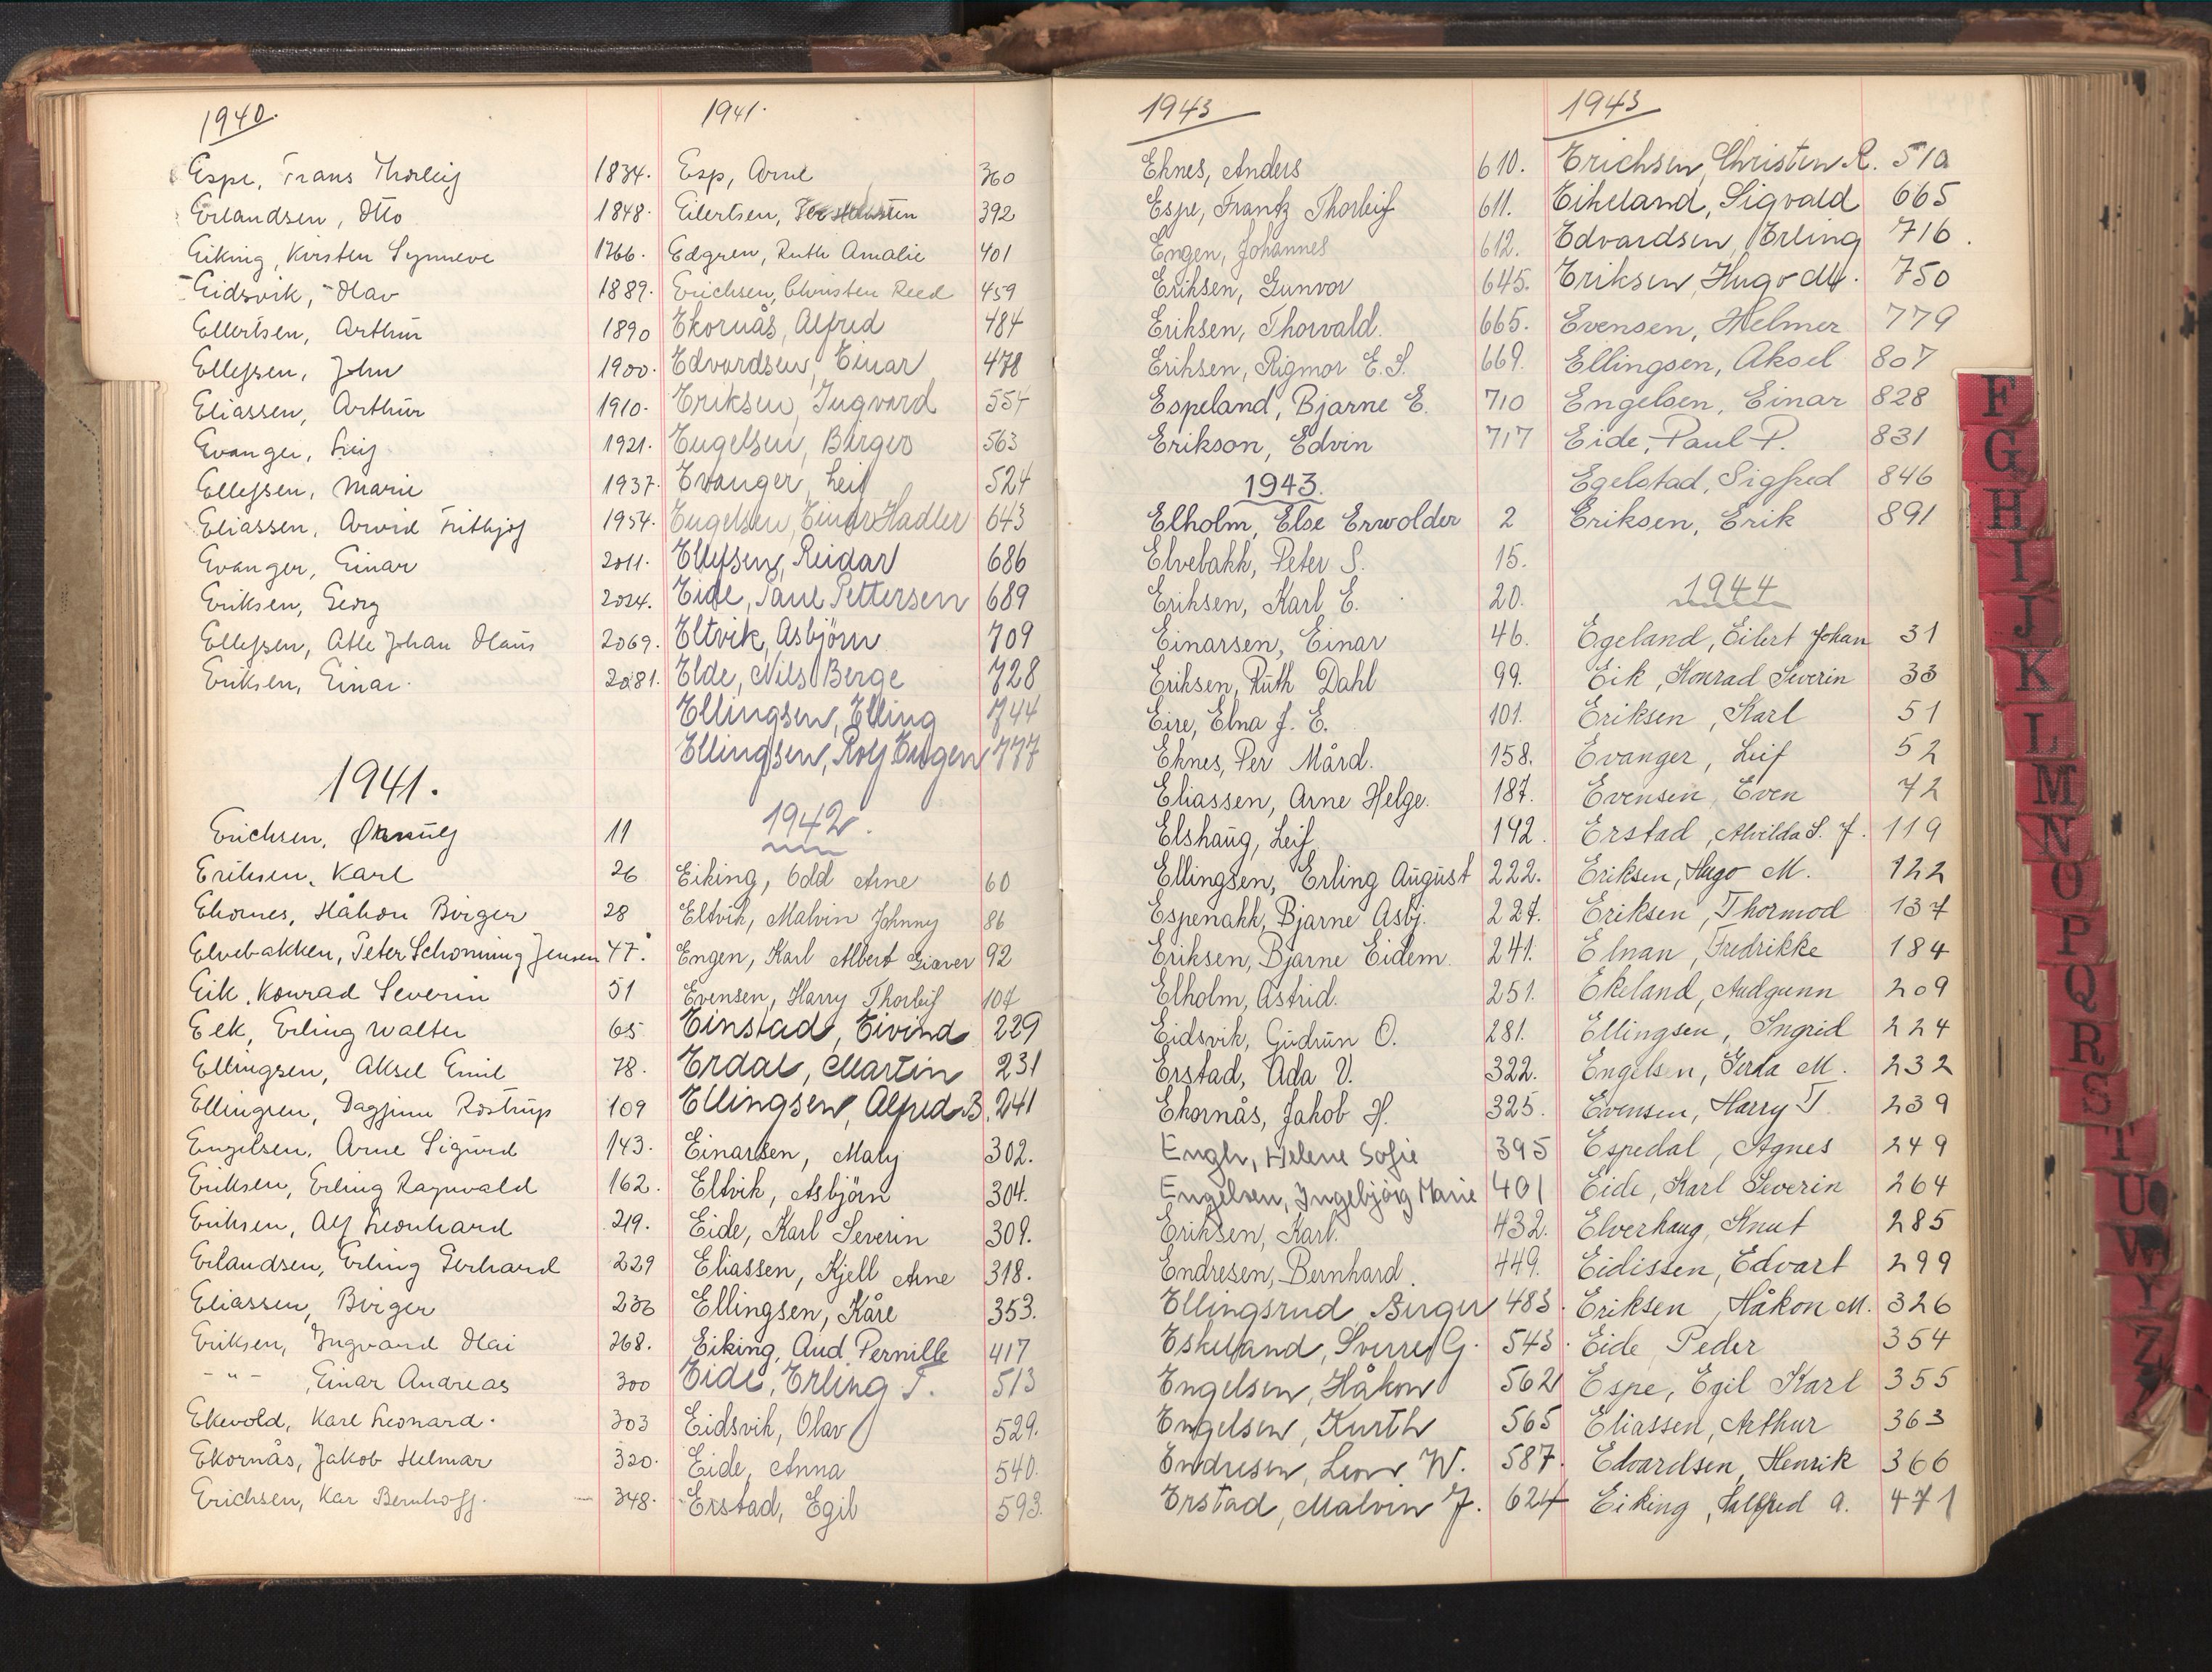 1940.
Espe, Frans Thorleif 1834.
Erlandsen, Otto 1848.
Eiking, Kirsten Synneve 1766.
Eidsvik, Olav 1889.
Ellertsen, Arthur 1890
Ellefsen, John 1900.
Eliassen, Arthur 1910.
Evanger, Leif 1921.
Ellefsen, Marie 1937.
Eliassen, Arvid Frithjof 1954.
Evanger, Einar 2011.
Eriksen, Georg 2024.
Ellefsen, Atle Johan Olaus 2069.
Eriksen, Einar. 2081.
1941.
Erichsen, Ørnulf 11
Eriksen, Karl 26
Ekornes, Håkon Birger 28
Elvebakken, Peter Schønning Jensen 47.
Eik, Konrad Severin 51
Eek, Erling Walter 65
Ellingsen, Aksel Emil 78.
Ellingsen, Dagfinn Rostrup 109
Engelsen, Arne Sigurd 143.
Eriksen, Erling Ragnvald 162.
Eriksen, Alf Leonhard 219.
Erlandsen, Erling Gerhard 229
Eliassen, Birger 236
Eriksen, Ingvard Olai 268.
- " - , Einar Andreas 300
Ekevold, Karl Leonard. 303
Ekornås, Jakob Helmar 320.
Erichsen, Kår Bernhoff. 348.
1941.
Esp, Arne 360
Eilertsen, 392
Edgren, Ruth Amalie 401
Erichsen, Christen Reed 459
Ekornås, Alfred 484
Edvardsen, Einar 478
Eriksen, Ingvard 554
Engelsen, Birger 563
Evanger, Leif 524
Engelsen, Einar Hadler 643
Ellefsen, Reidar 686
Eide, Paul Pettersen 689
Eltvik, Asbjörn 709
Elde, Nils Berge 728
Ellingsen, Elling 744
Ellingsen, Rolf Eugen 777
1942.
Eiking, Odd Arne 60
Eltvik, Malvin Johnny 86
Engen, Karl Albert Giæver 92
Evensen, Harry Thorleif 107
Einstad, Eivind 229
Erdal, Martin 231
Ellingsen, Alfred B. 241
Einarsen, Maly 302.
Eltvik, Asbjörn 304.
Eide, Karl Severin 309.
Eliassen, Kjell Arne 318.
Ellingsen, Kåre 353.
Eiking, Aud Pernille 417
Eide, Erling T. 513
Eidsvik, Olav 529.
Eide, Anna 540.
Erstad, Egil 593.
1943
Eknes, Anders 610.
Espe, Frantz Thorleif 611.
Engen, Johannes 612.
Eriksen, Gunvor 645.
Eriksen, Thorvald. 665.
Eriksen, Rigmor E. S. 669.
Espeland, Bjarne E. 710
Erikson, Edvin 717
1943.
Elholm, Else Erwolder 2
Elvebakk, Peter S. 15.
Eriksen, Karl E. 20.
Einarsen, Einar 46.
Eriksen, Ruth Dahl 99.
Eire, Elna J. E. 101.
Eknes, Per Mård. 158.
Eliassen, Arne Helge. 187.
Elshaug, Leif 192.
Ellingsen, Erling August 222.
Espenakk, Bjarne Asbj. 227.
Eriksen, Bjarne Eidem. 241.
Elholm, Astrid. 251.
Eidsvik, Gudrun O. 281.
Erstad, Ada V. 322.
Ekornås, Jakob H. 325.
Engh, Helene Sofie 395
Engelsen, Ingebjörg Marie 401
Eriksen, Karl. 432.
Endresen, Bernhard. 449.
Ellingsrud, Birger 483.
Eskeland, Sverre G. 543.
Engelsen, Håkon 562
Engelsen, Kurth 565
Endresen, Leon W. 587.
Erstad, Malvin J. 624
1943
Erichsen, Christen R. 510
Eikeland, Sigvald 665
Edvardsen, Erling 716.
Eriksen, Hugo M. 750
Evensen, Helmer 779
Ellingsen, Aksel 807
Engelsen, Einar 828
Eide, Paul P. 831
Egelstad, Sigfred 846
Eriksen, Erik 891
1944
Egeland, Eilert Johan 31
Eik, Konrad Severin 33
Eriksen, Karl 51
Evanger, Leif 52
Evensen, Even 72
Erstad, Alvilda S. J. 119
Eriksen, Hugo M. 122
Eriksen, Thormod 137
Elnan, Fredrikke 184
Ekeland, Audgunn 209
Ellingsen, Ingrid 224
Engelsen, Gerda M. 232
Evensen, Harry T. 239
Espedal, Agnes 249
Eide, Karl Severin 264
Elverhaug, Knut 285
Eidissen, Edvart 299
Eriksen, Håkon M. 326
Eide Peder 354
Espe, Egil Karl 355
Eliassen, Arthur 363
Edvardsen, Henrik 366
Eiking, Halfred A. 471
F
G
H
I
J
K
L
M
N
O
P
Q
R
S
T
U
W
Y
Z